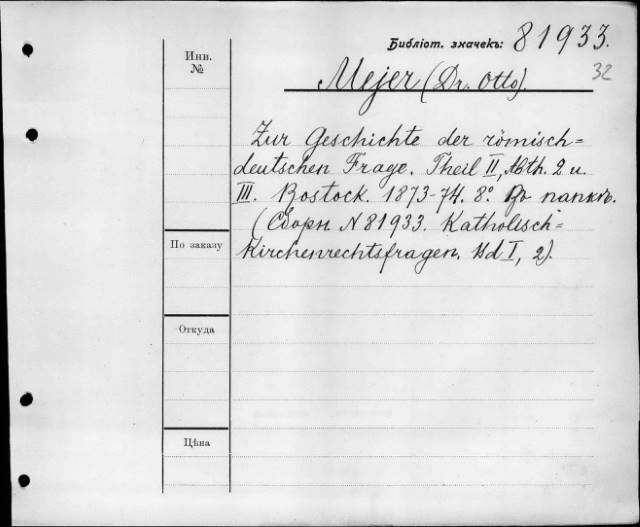 Библіот. значекъ: 81933.
32
Инв.
№
Mejer (Dr. Otto).
Zur Geschichte der römisch=
deutschen Frage. Theil II, Abth. 2 u.
III. Rostock. 1873-74. 8º. Въ папкѣ.
(Сборн. № 81933. Katholisch=
По заказу
Kirchenrechtsfragen. Bd I, 2).
Откуда
Цѣна